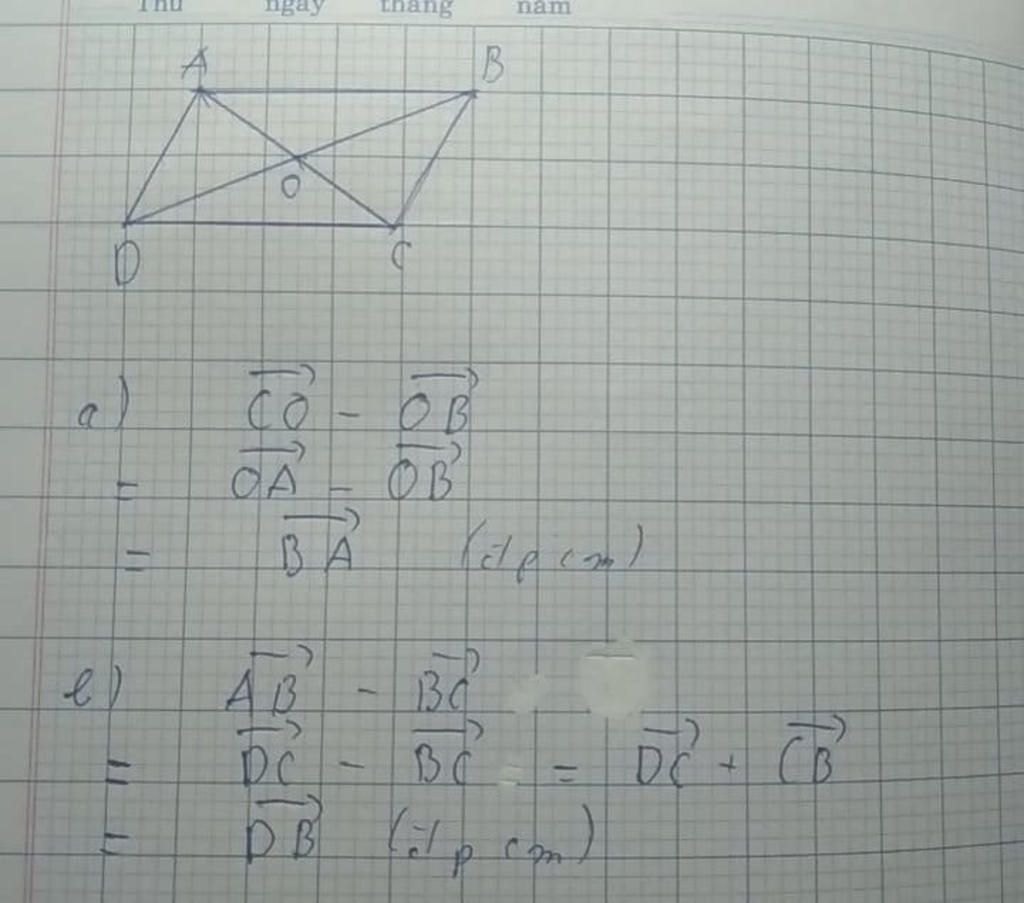 Thứ ngày tháng năm
A B
O
D C
a) $\overrightarrow{CO} - \overrightarrow{OB}$
= $\overrightarrow{OA} - \overrightarrow{OB}$
= $\overrightarrow{BA}$ (đpcm)
b) $\overrightarrow{AB} - \overrightarrow{BC}$
= $\overrightarrow{DC} - \overrightarrow{BC}$ = $\overrightarrow{DC} + \overrightarrow{CB}$
= $\overrightarrow{DB}$ (đpcm)